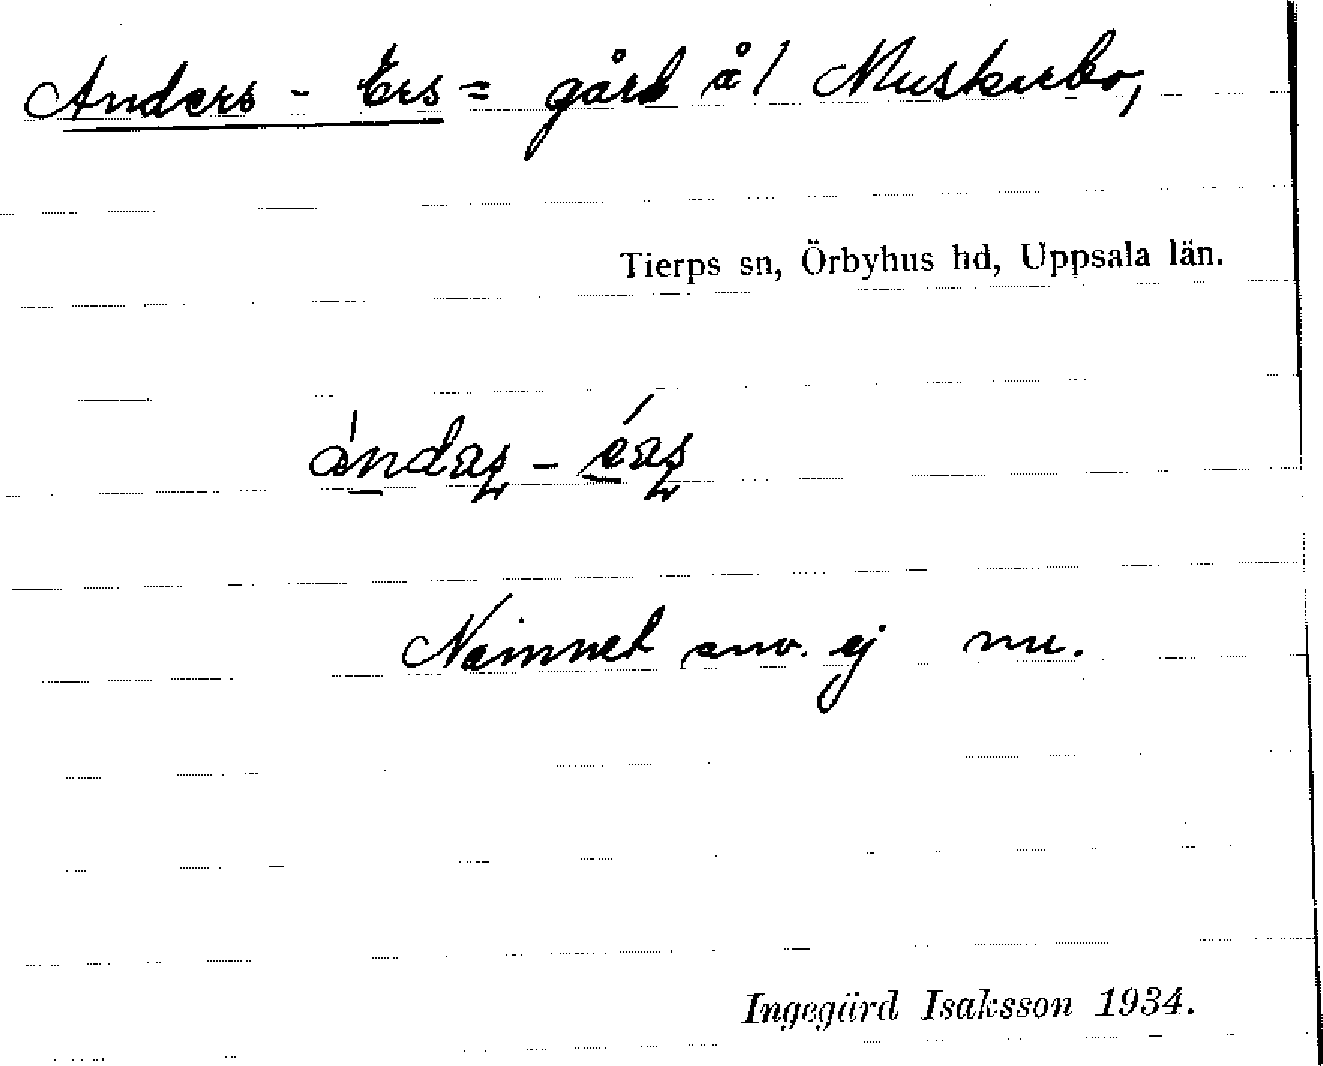 Anders - Ers = gård å / Muskarbo,
Tierps sn, Örbyhus hd, Uppsala län.
ándaʂ - éaʂ
Namnet anv. ej nu.
Ingegärd Isaksson 1934.